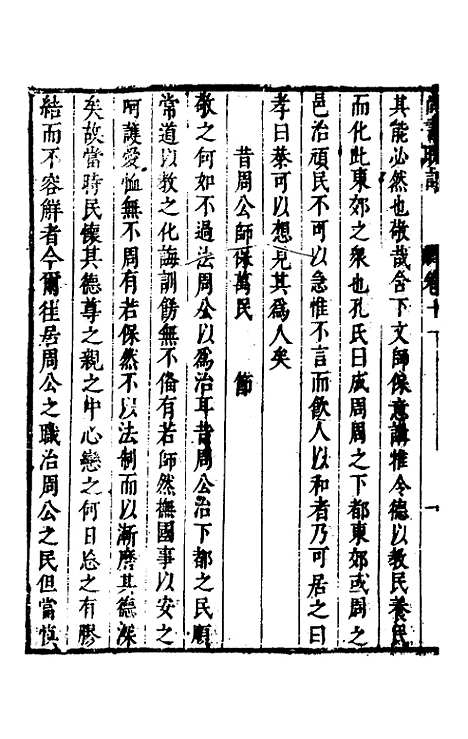 其能必然也敬哉含下文師保意講惟令德以教民養民
而化此東郊之衆也孔氏曰成周周之下都東郊或周之
邑治頑民不可以急惟不言而飲人以和者乃可居之曰
孝曰恭可以想見其爲人矣
昔周公師保萬民 節
敬之何如不過法周公以爲治耳昔周公治下都之民順
常道以教之化誨訓飭無不偹有若師然撫國事以安之
呵護愛恤無不周有若保然不以法制而以漸磨其德深
矣故當時民懷其德尊之親之中心戀之何日忘之有膠
結而不容解者今爾徃居周公之職治周公之民但當慎